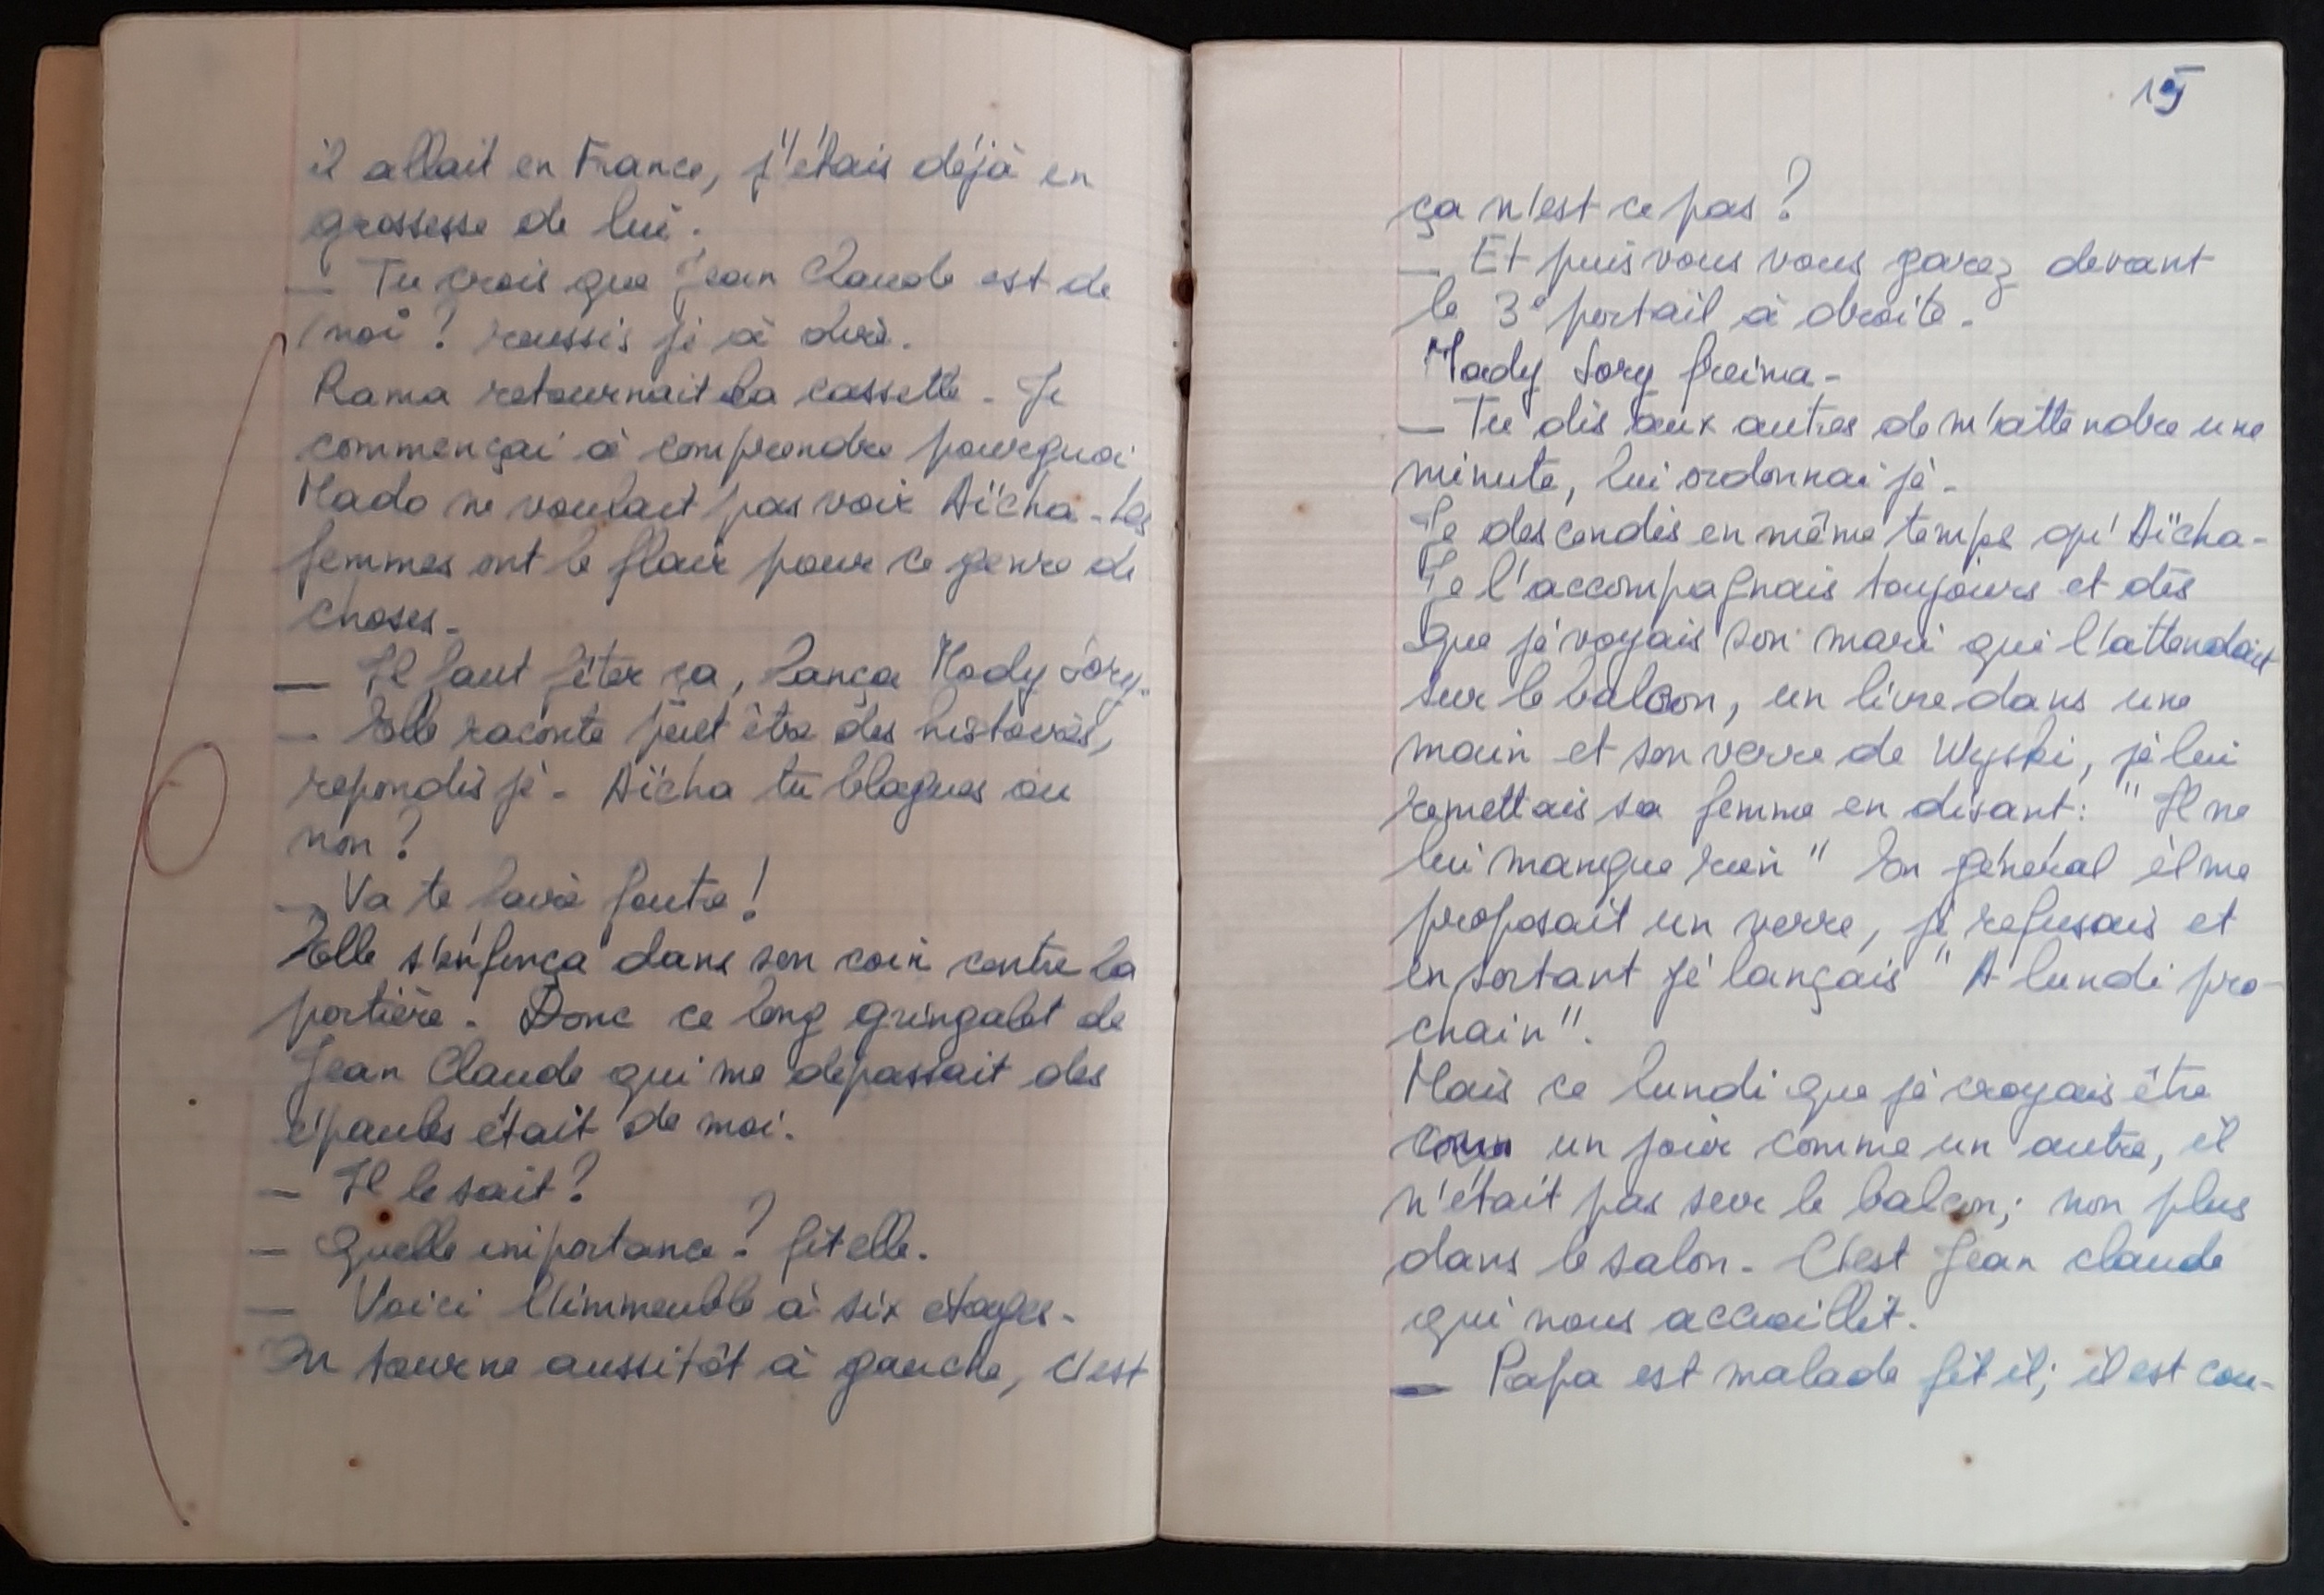 il allait en France, j'étais déjà en
grossesse de lui.
— Tu crois que Jean Claude est de
moi ? reussis je à dire.
Rama retournait la cassette - Je
commençai à comprendre pourquoi
Mado ne voulait pas voir Aïcha - Les
femmes ont le flair pour ce genre de
choses -
— Il faut fêter ça, lança Mady Sory.
— Elle raconte peut être des histoires,
repondis je - Aïcha tu blagues ou
non ?
— Va te faire foutre !
Elle s'enfonça dans son coin contre la
portière. Donc ce long gringalet de
Jean Claude qui me dépassait des
épaules était de moi.
— Il le sait ?
— Quelle importance ? fit elle.
— Voici l'immeuble à six étages -
On tourne aussitôt à gauche, c'est
15
ça n'est ce pas ?
— Et puis vous vous garez devant
le 3e portail à droite -
Mady Sory freina -
— Tu dis aux autres de m'attendre une
minute, lui ordonnai je -
Je descendis en même temps qu'Aïcha -
Je l'accompagnais toujours et dès
que je voyais son mari qui l'attendait
sur le balcon, un livre dans une
main et son verre de Wyski, je lui
remettais sa femme en disant : " Il ne
lui manque rien " En général il me
proposait un verre, je refusais et
en sortant je lançais " A lundi pro-
chain ".
Mais ce lundi que je croyais être
un jour comme un autre, il
n'était pas sur le balcon ; non plus
dans le salon - C'est Jean claude
qui nous accueillit.
— Papa est malade fit il ; il est cou-